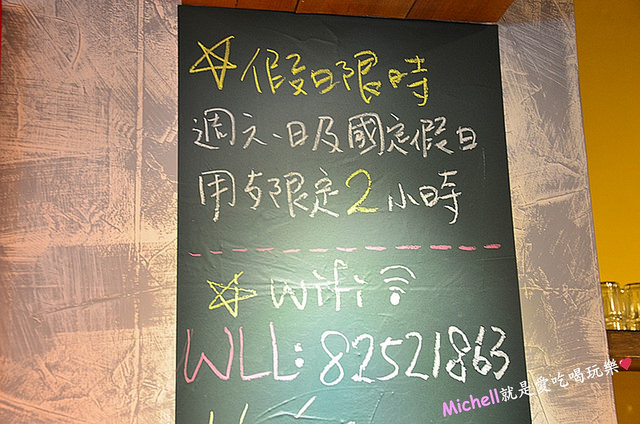 ☆假日限時
週六、日及國定假日
用歺限定2小時
☆wifi
WLL:82521863
Michell就是愛吃喝玩樂